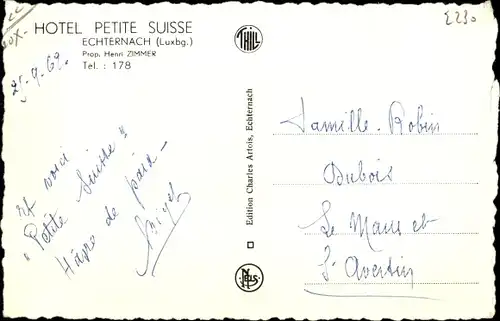 HOTEL PETITE SUISSE
ECHTERNACH (Luxbg.)
Prop. Henri ZIMMER
Tel. : 178
25.9.69.
Et voici
"Petite Suisse"
de paix -
THILL
Edition Charles Artois, Echternach
Nels
£230
Famille Robin
Dubois
Le Mans et
St Avertin